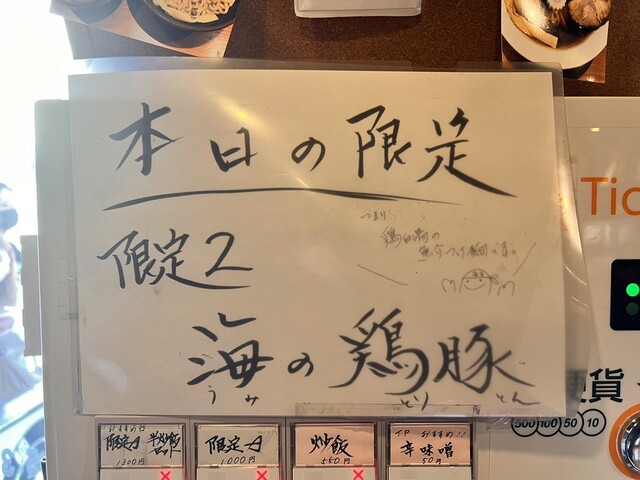 本日の限定
限定2
つまり
海の鶏豚
うみ とり とん
Tic
硬貨
500 100 50 10
おすすめ☆
限定A 半炒飯セット
1300円
限定A
1,000円
炒飯
550円
おすすめ!!
辛味噌
50円